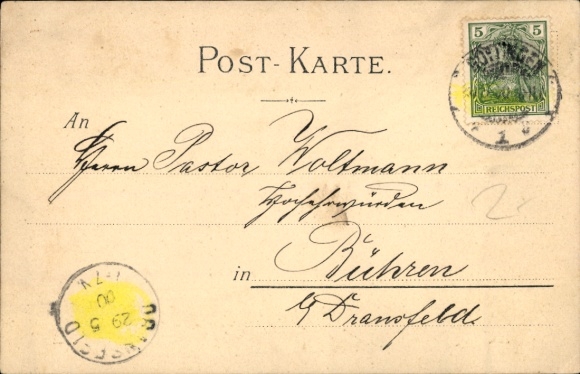 5 5
GOETTINGEN
REICHSPOST
1
POST-KARTE.
An
Herrn Pastor Woltmann
Hochehrwürden
in Bühren
b/ Dransfeld.
DRANSFELD
29 5
00